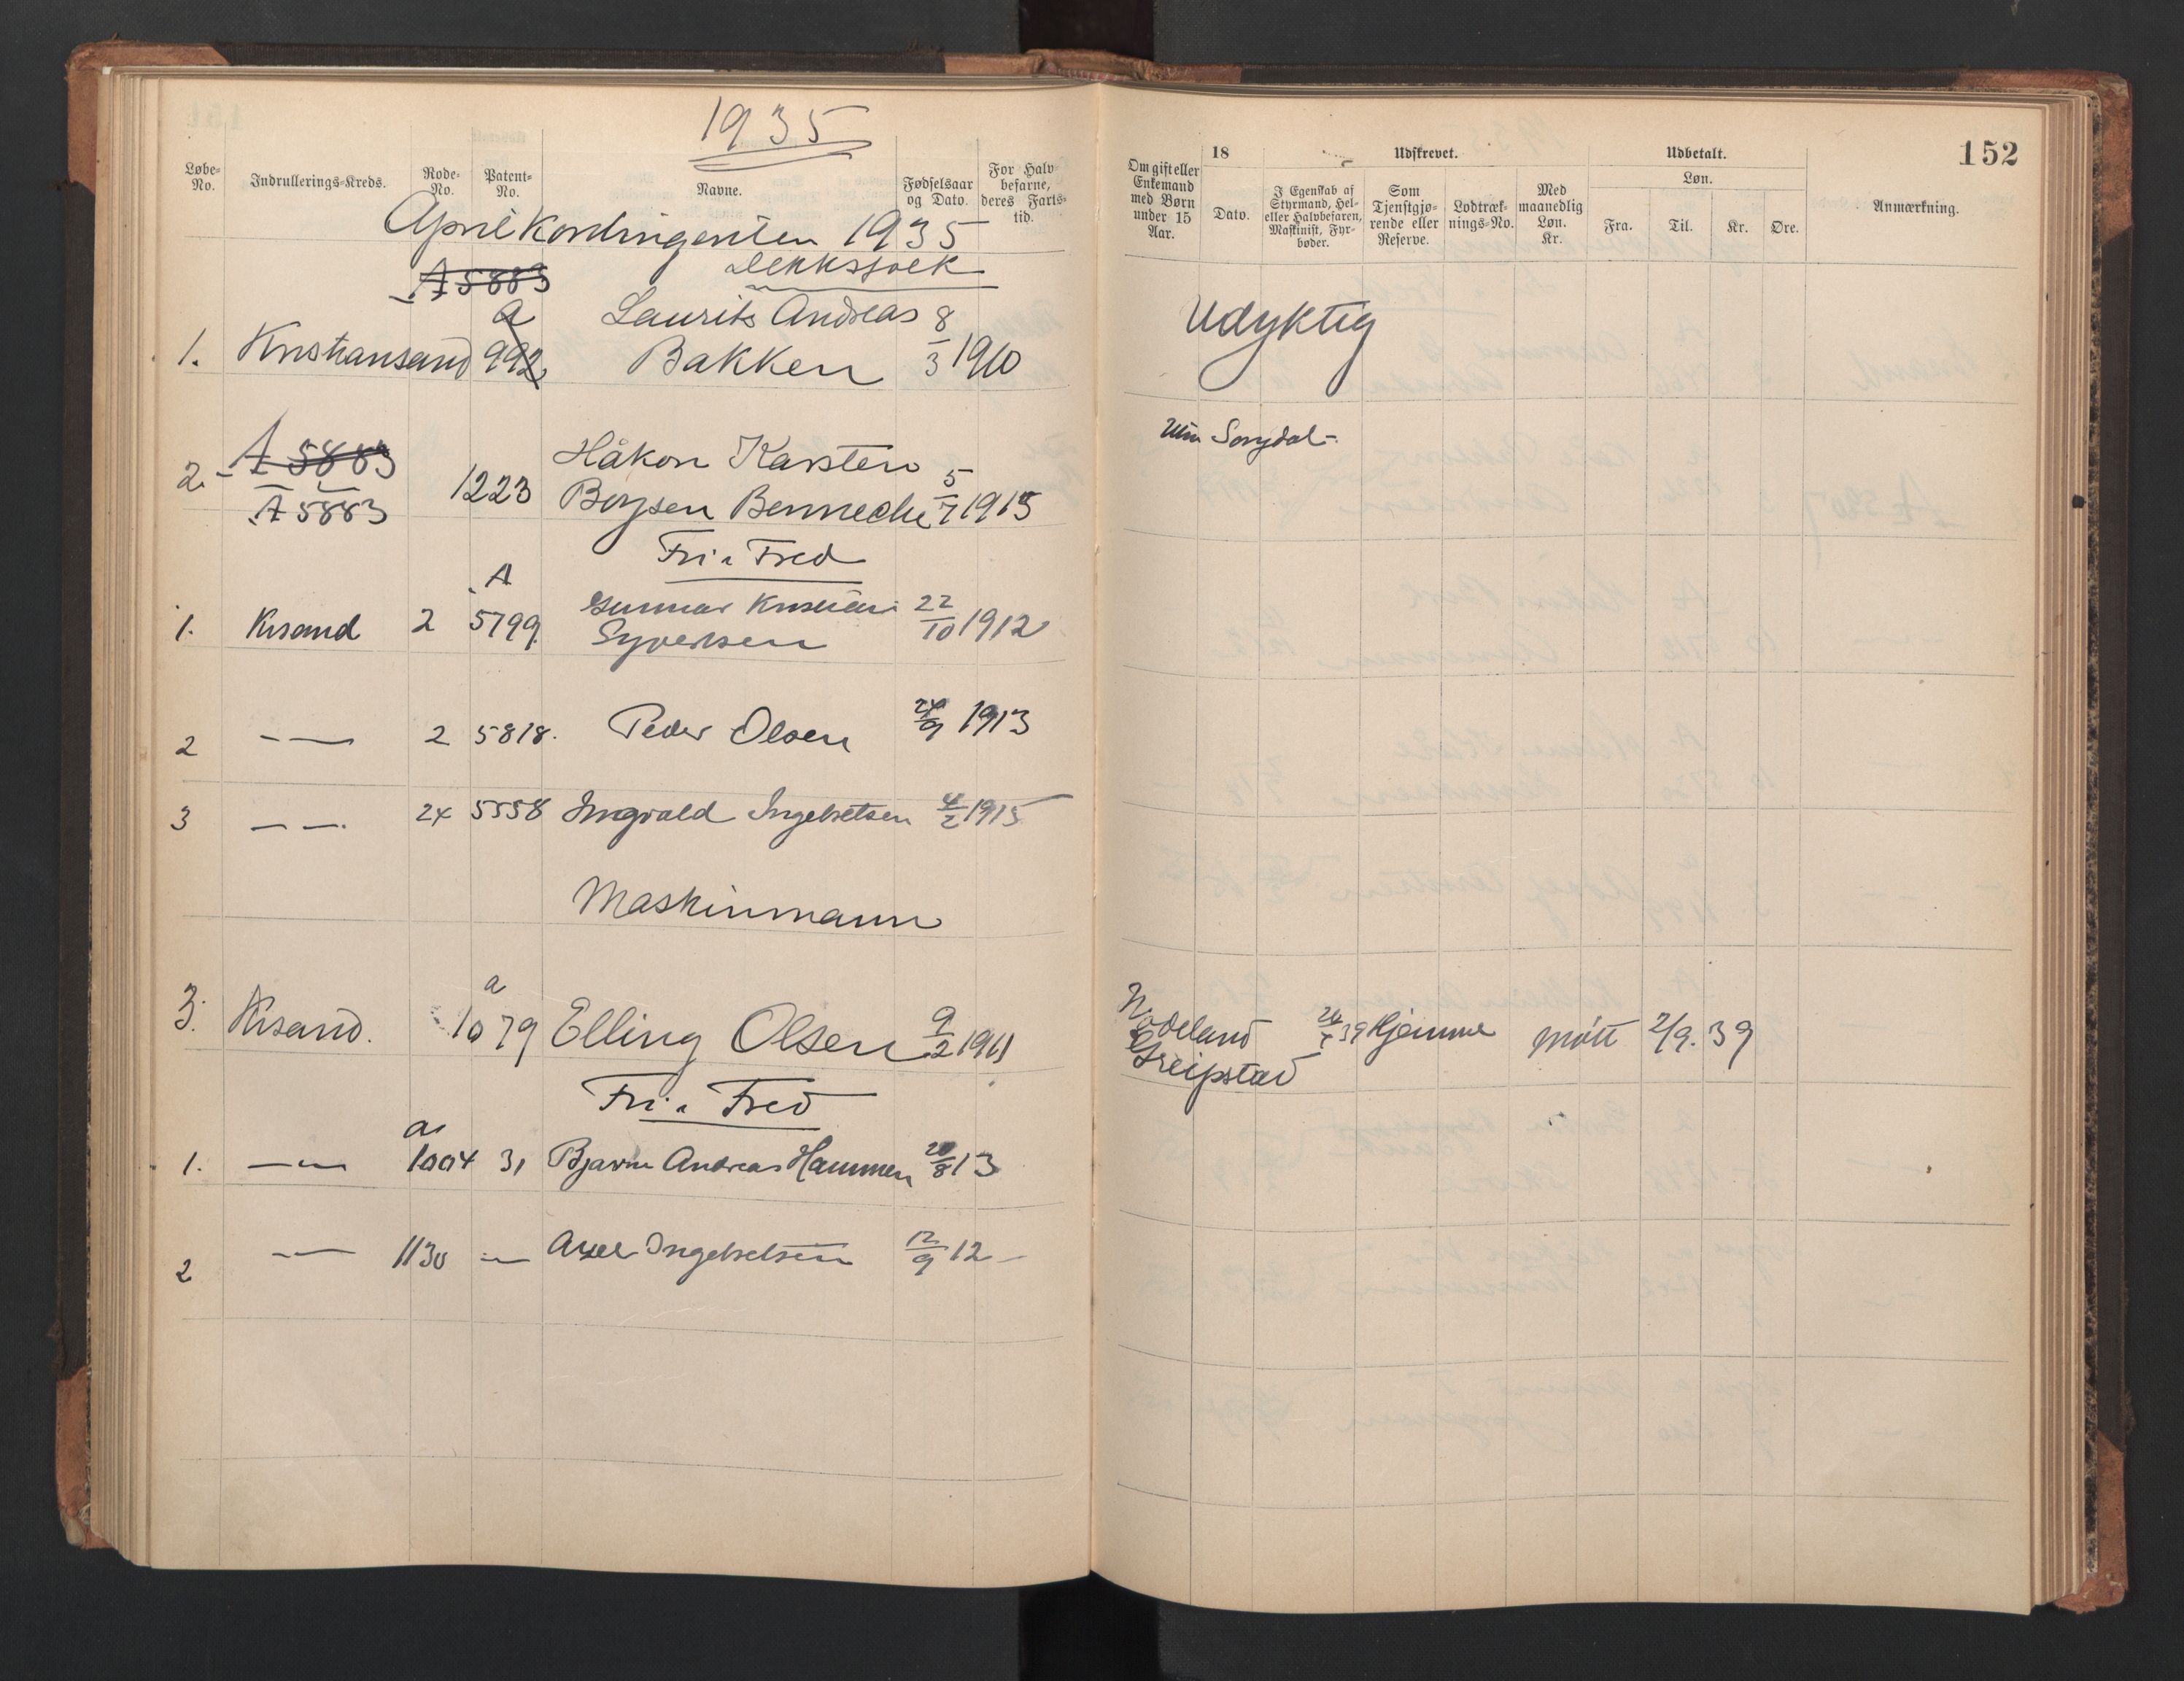 1935
Løbe-No. Indrullerings-Kreds. Rode-No. Patent-No. Navne. Fødselsaar og Dato. For Halvbefarne, deres Fartstid.
April Kontingenten 1935
A 5883 Dekksfolk
a Laurits Andreas 8
1. Kristiansand 992 Bakken 3 1910
2. A 5883 Håkon Karsten 5
A 5883 1223 Boysen Benneche 7 1915
Fri i Fred
A Gunnar Kristian 22
1. Krsand 2 5799 Syvertsen 10 1912
2 — — 2 5818. Peder Olsen 24/9 1913
3 — — 24 5558 Ingvald Ingebretsen 4/2 1915
Maskinmann
a
3. Krsand. 1079 Elling Olsen 9/2 1911
Fri i Fred
a
1. — — 1004 31 Bjarne Andreas Hammen 20/8 13
2 — — 1130 — Axel Ingebretsen 12/9 12
152
Om gift eller Enkemand med Børn under 15 Aar. 18 Dato. Udskrevet. I Egenskab af Styrmand, Hel- eller Halvbefaren, Maskinist, Fyrbøder. Som Tjenstgjørende eller Reserve. Lodtræknings-No. Med maanedlig Løn. Kr. Udbetalt. Løn. Fra. Til. Kr. Øre. Anmærkning.
Udyktig
Songdal
Nodeland 39 Hjemme møtt 2/9. 39
Greipstad